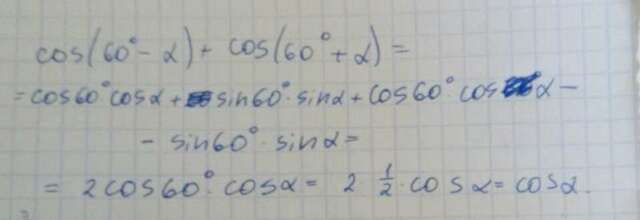 cos(60°-α) + cos(60°+α) =
= cos60° cosα + sin60° · sinα + cos60° cos α -
- sin60° · sinα =
= 2cos60° · cosα = 2 1/2 · cosα = cosα.